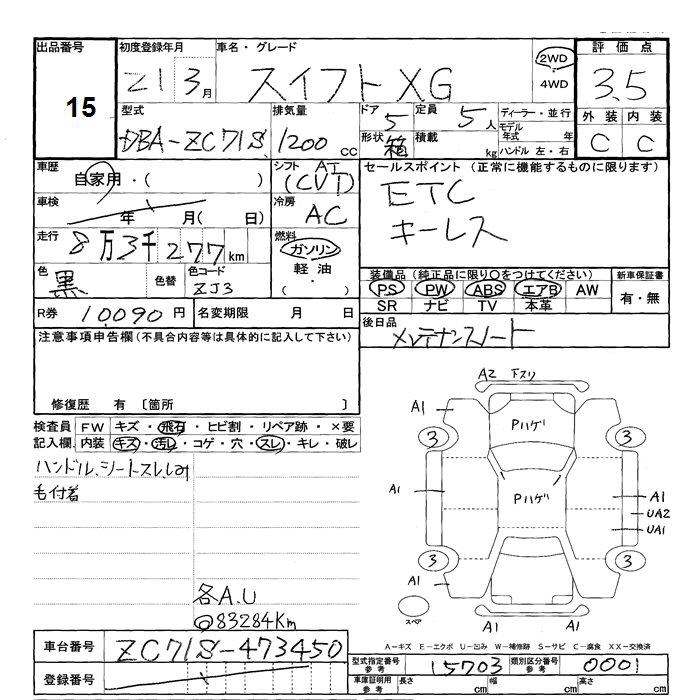 出品番号 15
初度登録年月 21 3月
車名・グレード スイフト XG
2WD
4WD
評価点 3.5
外装 内装
C C
型式 DBA-ZC71S
排気量 1200 cc
ドア 5
定員 5人
形状 箱
積載 kg
ディーラー・並行
モデル年式 年
ハンドル 左・右
車歴 自家用・( )
シフト AT (CVT)
車検 年 月( 日)
冷房 AC
走行 8万3千277km
燃料 ガソリン
軽油
・( )
色 黒
色替
色コード ZJ3
セールスポイント (正常に機能するものに限ります)
ETC
キーレス
装備品 (純正品に限り○をつけてください)
PS PW ABS エアB AW
SR ナビ TV 本革
新車保証書
有・無
R券 10090円
名変期限 月 日
後日品 メンテナンスノート
注意事項申告欄(不具合内容等は具体的に記入して下さい)
修復歴 有 〔箇所 〕
検査員記入欄
FW キズ・飛石・ヒビ割・リペア跡・×要
内装 キズ・汚レ・コゲ・穴・スレ・キレ・破レ
ハンドル、シートスレ、しみ
毛付着
各A.U
@83284Km
A2 下スリ
A1
Pハゲ
3 3
A1
Pハゲ
A1
UA2
UA1
3 3
A1
スペア
A1 A1
A-キズ E-エクボ U-凹み W-補修跡 S-サビ C-腐食 XX-交換済
車台番号 ZC71S-473450
登録番号
型式指定番号 参考 15703
類別区分番号 参考 0001
車庫証明用 参考 長さ cm 幅 cm 高さ cm